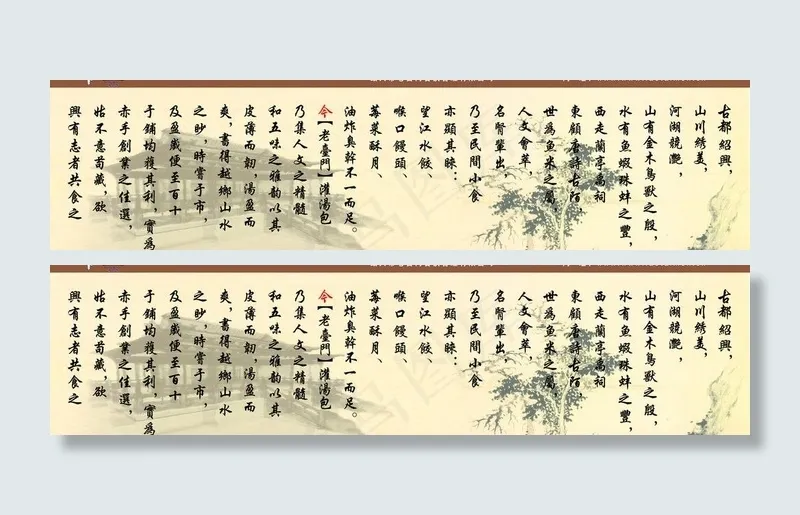 古都紹興，
山川綉美，
河湖競灩，
山有金木鳥獸之殷，
水有魚蝦珠蚌之豐，
西走蘭亭禹祠
東顧唐詩古陌，
世爲魚米之屬，
人文會萃，
名賢輩出，
乃至民間小食
亦顯其睞：
望江水餃、
喉口饅頭、
莓菜酥月、
油炸臭幹不一而足。
今【老臺門】灌湯包
乃集人文之精髓
和五味之雅韵以其
皮薄而韌，湯盈而
爽，書得越鄉山水
之妙，時嘗于市，
及盈歲便至百十
于鋪均獲其利，實爲
赤手創業之佳選，
姑不意苟藏，欲
興有志者共食之
古都紹興，
山川綉美，
河湖競灩，
山有金木鳥獸之殷，
水有魚蝦珠蚌之豐，
西走蘭亭禹祠
東顧唐詩古陌，
世爲魚米之屬，
人文會萃，
名賢輩出，
乃至民間小食
亦顯其睞：
望江水餃、
喉口饅頭、
莓菜酥月、
油炸臭幹不一而足。
今【老臺門】灌湯包
乃集人文之精髓
和五味之雅韵以其
皮薄而韌，湯盈而
爽，書得越鄉山水
之妙，時嘗于市，
及盈歲便至百十
于鋪均獲其利，實爲
赤手創業之佳選，
姑不意苟藏，欲
興有志者共食之